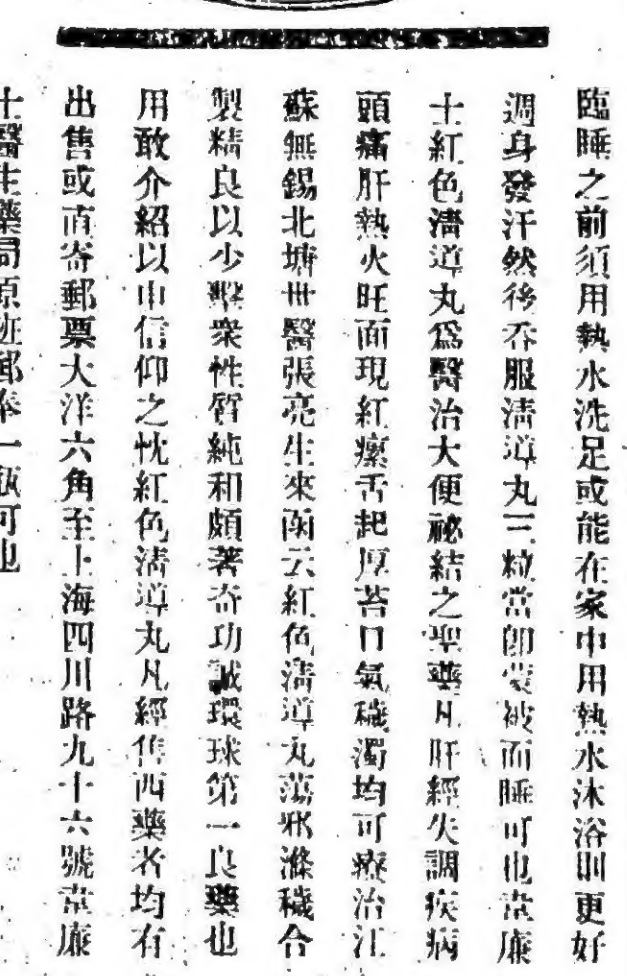 臨睡之前須用熱水洗足或能在家中用熱水沐浴則更好
週身發汗然後吞服淸導丸三粒當卽蒙被而睡可也韋廉
士紅色淸導丸爲醫治大便祕結之聖藥凡肝經失調疾病
頭痛肝熱火旺面現紅瘰舌起厚苔口氣穢濁均可療治江
蘇無錫北塘世醫張亮生來函云紅色淸導丸蕩邪滌穢合
製精良以少擊衆性質純和頗著奇功誠環球第一良藥也
用敢介紹以申信仰之忱紅色淸導丸凡經售西藥者均有
出售或直寄郵票大洋六角至上海四川路九十六號韋廉
士醫生藥局原班郵奉一瓶可也